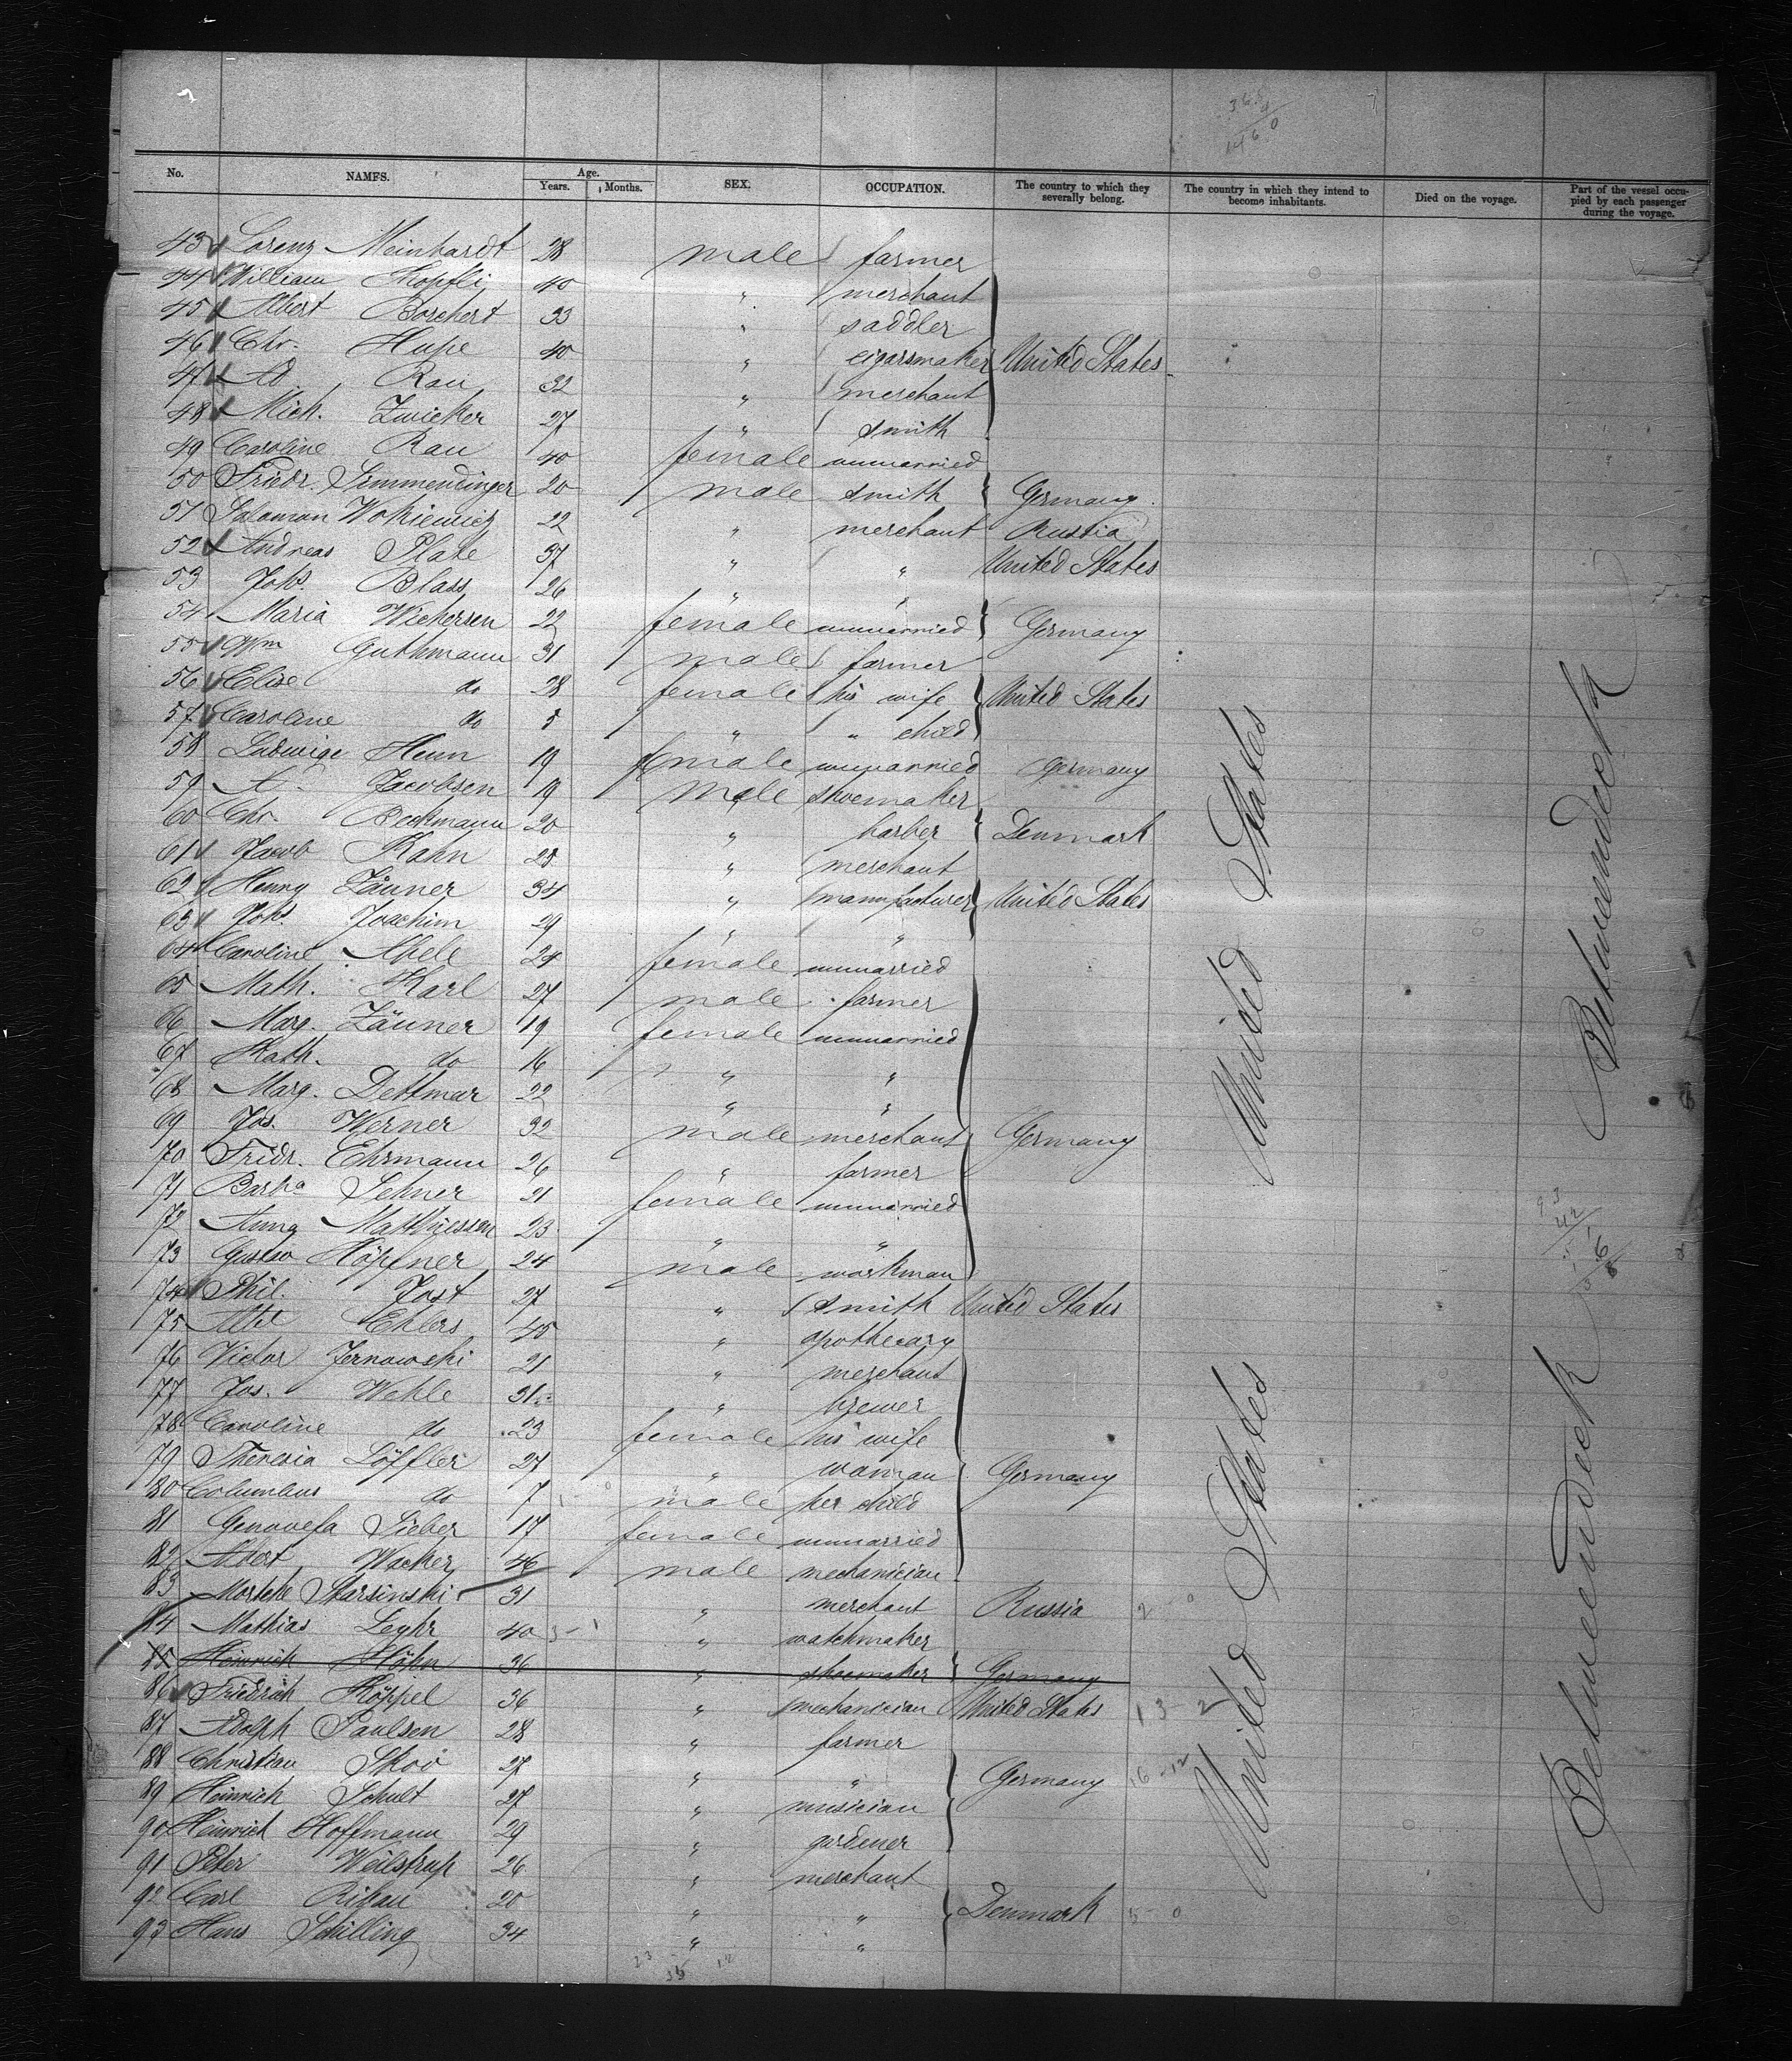 No. NAMES. Age. Years. Months. SEX. OCCUPATION. The country to which they severally belong. The country in which they intend to become inhabitants. Died on the voyage. Part of the vessel occupied by each passenger during the voyage.
43 Lorenz Meinhardt 28 male farmer
44 William Köpfli 40 " merchant
45 Albert Borchert 33 " saddler
46 Chr. Hupe 40 " cigarsmaker United States
47 Ad. Rau 32 " merchant
48 Mich. Zwicker 27 " smith
49 Caroline Rau 40 female unmarried
50 Friedr. Simmendinger 20 male smith Germany
51 Salomon Wokiewicz 22 " merchant Russia
52 Andreas Plate 37 " " United States
53 Johs. Blass 26 " "
54 Maria Wickersen 22 female unmarried Germany
55 Wm Guthmann 31 male farmer
56 Elise do 28 female his wife United States
57 Caroline do 5 " " child
58 Ludwige Henn 19 female unmarried Germany
59 A. Jacobsen 19 male shoemaker
60 Chr. Beckmann 20 " barber Denmark
61 Jacob Kahn 28 " merchant
62 Henry Zäuner 34 " manufacturer United States
63 Johs. Joachim 29 " "
64 Caroline Abele 24 female unmarried
65 Math. Karl 27 male farmer
66 Marg. Zäuner 19 female unmarried
67 Kath. do 16 " "
68 Marg. Dettmar 22 " "
69 Jos. Werner 32 male merchant Germany
70 Fridr. Ehrmann 26 " farmer
71 Barba Sehner 21 female unmarried
72 Anna Matthiessen 23 " "
73 Gustav Höpfner 24 male workman
74 Phil. Jost 27 " smith United States
75 Ehlers 45 " apothecary
76 Victor Jernowski 21 " merchant
77 Jos. Wehle 31 " brewer
78 Caroline do 23 female his wife
79 Theresia Löffler 27 " woman Germany
80 Columbus do 7 male her child
81 Genovefa Sieber 17 female unmarried
82 Albert Wacker 46 male mechanician
83 Mortche Starsinski 31 " merchant Russia
84 Mathias Leyhr 40 " watchmaker
85 Heinrich Höhn 36 " shoemaker Germany
86 Friedrich Köppel 36 " mechanician United States 13 - 2
87 Adolph Paulsen 28 " farmer
88 Christian Skov 27 " " Germany 16 - 12
89 Heinrich Schult 27 " musician
90 Heinrich Hoffmann 29 " gardener
91 Peter Weilstrup 26 " merchant
92 Carl Ribau 20 " " Denmark 5 - 0
93 Hans Schilling 34 " "
United States
United States
Betweendeck
Betweendeck